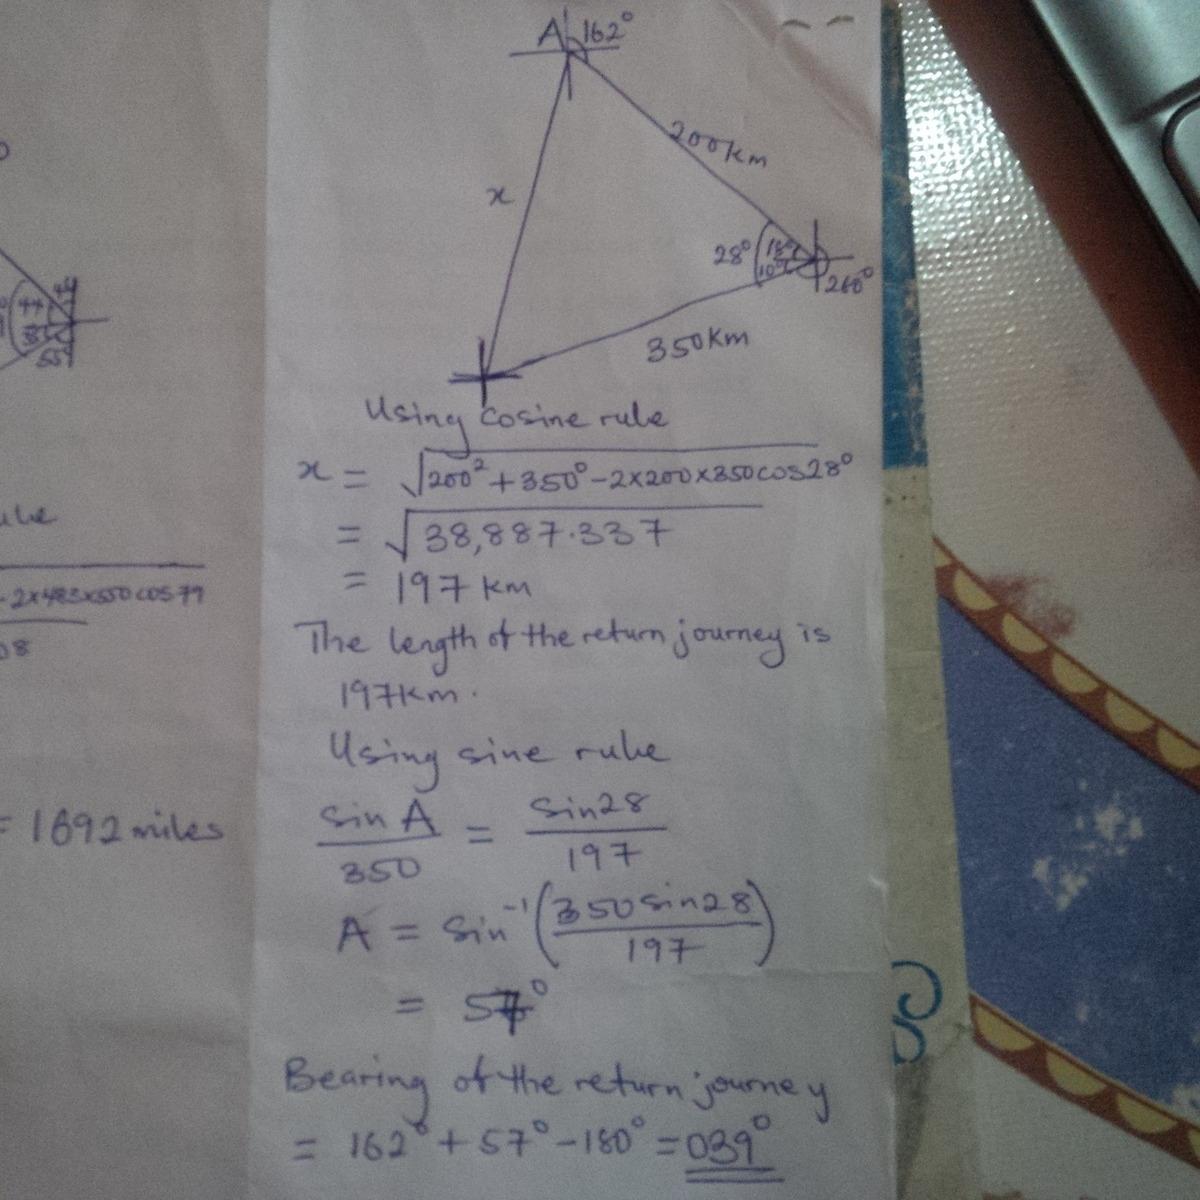 A 162°
200km
x
28° 18° 10° 260°
350km
44
55
Using cosine rule
x = √200² + 350° - 2×200×350cos28°
= √38,887.337
= 197 km
The length of the return journey is
197km.
Using sine rule
sin A / 350 = sin28 / 197
A = sin⁻¹(350sin28 / 197)
= 57°
Bearing of the return journey
= 162° + 57° - 180° = 039°
- 2×483×550cos79
08
= 1692 miles